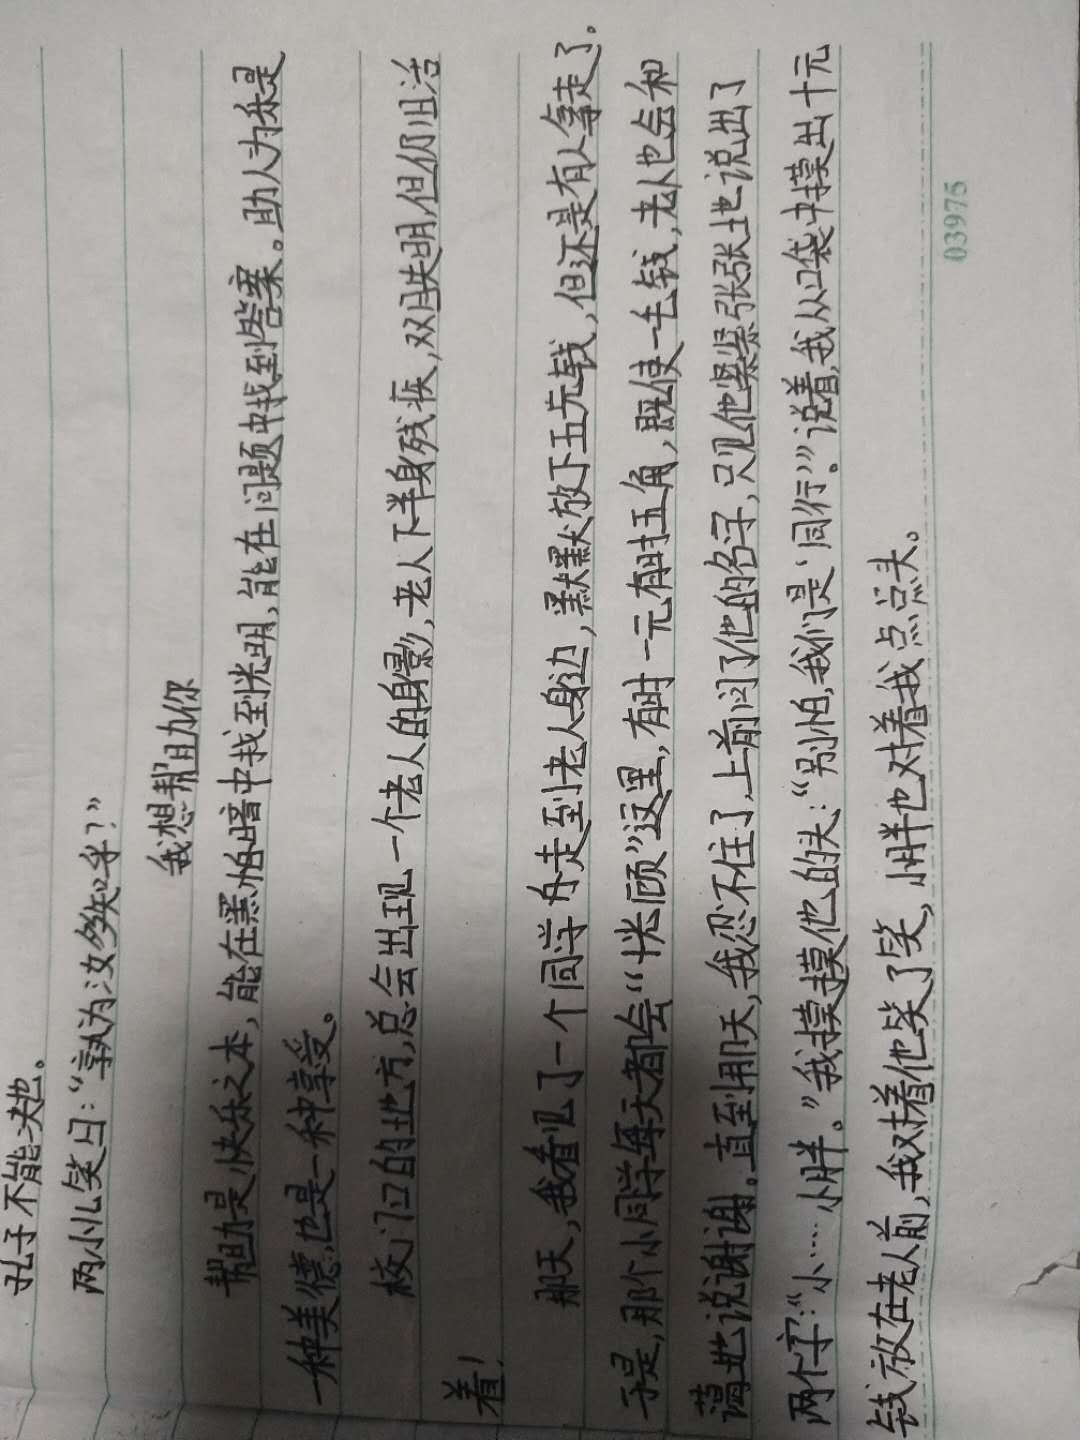 孔子不能决也。
两小儿笑曰：“孰为汝多知乎？”
我想帮助你
帮助是快乐之本，能在黑怕暗中找到光明，能在问题中找到答案。助人为乐是
一种美德，也是一种享受。
校门口的地方，总会出现一个老人的身影，老人下半身残疾，双目失明，但仍旧活
着！
那天，我看见了一个同学走到老人身边，默默放下五元钱，但还是有人拿走了。
于是，那个小同学每天都会“光顾”这里，有时一元有时五角，既使一毛钱，老人也会和
蔼地说谢谢。直到那天，我忍不住了，上前问了他的名字，只见他紧紧张张地说出了
两个字：“小……小胖。”我摸摸他的头：“别怕，我们是‘同行’。”说着，我从口袋中摸出十元
钱放在老人前，我对着他笑了笑，小胖也对着我点点头。
03975